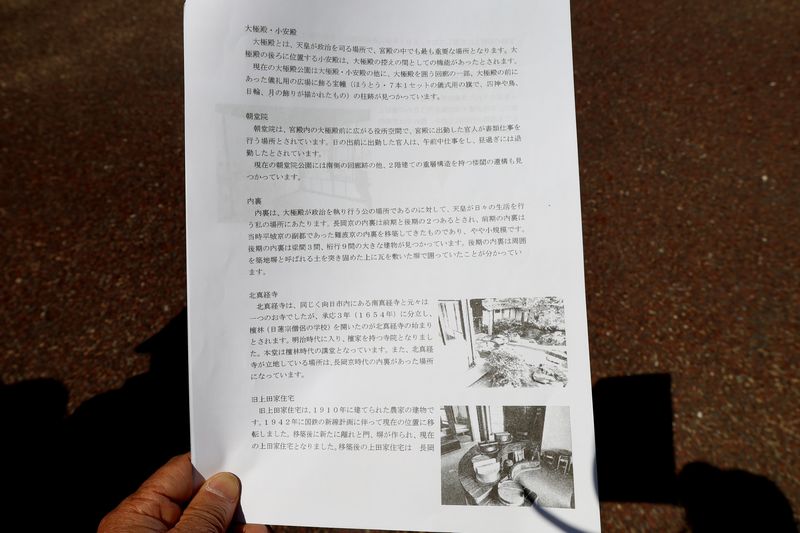 大極殿・小安殿
大極殿とは、天皇が政治を司る場所で、宮殿の中でも最も重要な場所となります。大
極殿の後ろに位置する小安殿は、大極殿の控えの間としての機能があったとされます。
現在の大極殿公園は大極殿・小安殿の他に、大極殿を囲う回廊の一部、大極殿の前に
あった儀礼用の広場に飾る宝幢（ほうとう・７本１セットの儀式用の旗で、四神や鳥、
日輪、月の飾りが描かれたもの）の柱跡が見つかっています。
朝堂院
朝堂院は、宮殿内の大極殿前に広がる役所空間で、宮殿に出勤した官人が書類仕事を
行う場所とされています。日の出前に出勤した官人は、午前中仕事をし、昼過ぎには退
勤したとされています。
現在の朝堂院公園には南側の回廊跡の他、２階建ての重層構造を持つ楼閣の遺構も見
つかっています。
内裏
内裏は、大極殿が政治を執り行う公の場所であるのに対して、天皇が日々の生活を行
う私の場所にあたります。長岡京の内裏は前期と後期の２つあるとされ、前期の内裏は
当時平城京の副都であった難波京の内裏を移築してきたものであり、やや小規模です。
後期の内裏は梁間３間、桁行９間の大きな建物が見つかっています。後期の内裏は周囲
を築地塀と呼ばれる土を突き固めた上に瓦を敷いた塀で囲っていたことが分かってい
ます。
北真経寺
北真経寺は、同じく向日市内にある南真経寺と元々は
一つのお寺でしたが、承応３年（１６５４年）に分立し、
檀林（日蓮宗僧侶の学校）を開いたのが北真経寺の始まり
とされます。明治時代に入り、檀家を持つ寺院となりまし
た。本堂は檀林時代の講堂となっています。また、北真経
寺が立地している場所は、長岡京時代の内裏があった場所
になっています。
旧上田家住宅
旧上田家住宅は、１９１０年に建てられた農家の建物で
す。１９４２年に国鉄の新線計画に伴って現在の位置に移
転しました。移築後に新たに離れと門、塀が作られ、現在
の上田家住宅となりました。移築後の上田家住宅は 長岡